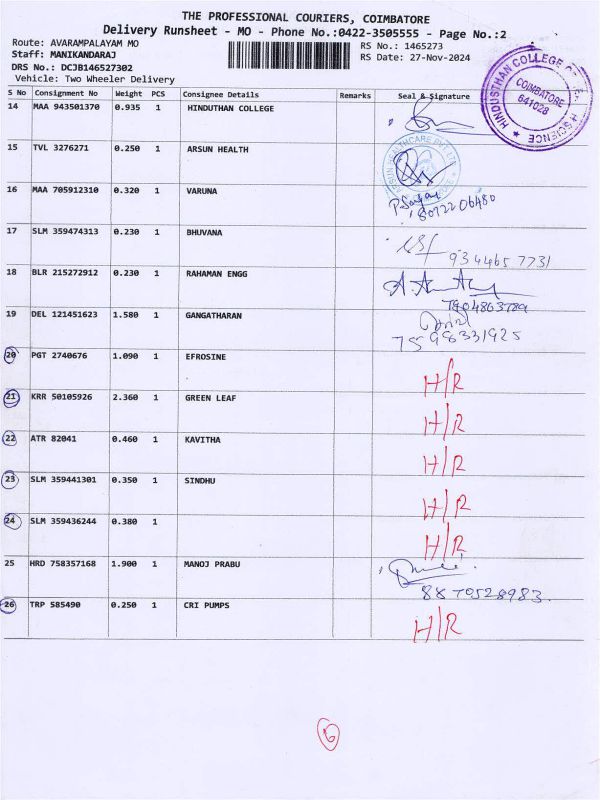 THE PROFESSIONAL COURIERS, COIMBATORE
Delivery Runsheet - MO - Phone No.:0422-3505555 - Page No.:2
Route: AVARAMPALAYAM MO
Staff: MANIKANDARAJ
DRS No.: DCJB146527302
Vehicle: Two Wheeler Delivery
RS No.: 1465273
RS Date: 27-Nov-2024
HINDUSTHAN COLLEGE SCIENCE
COIMBATORE
641028
S No Consignment No Weight PCS Consignee Details Remarks Seal & Signature
14 MAA 943501370 0.935 1 HINDUTHAN COLLEGE
15 TVL 3276271 0.250 1 ARSUN HEALTH
ARSUN HEALTHCARE PVT LTD
16 MAA 705912310 0.320 1 VARUNA
8072206480
17 SLM 359474313 0.230 1 BHUVANA
9344657731
18 BLR 215272912 0.230 1 RAHAMAN ENGG
7904863789
19 DEL 121451623 1.580 1 GANGATHARAN
7598331925
20 PGT 2740676 1.090 1 EFROSINE H/R
21 KRR 50105926 2.360 1 GREEN LEAF H/R
22 ATR 82041 0.460 1 KAVITHA H/R
23 SLM 359441301 0.350 1 SINDHU H/R
24 SLM 359436244 0.380 1 H/R
25 HRD 758357168 1.900 1 MANOJ PRABU
8870528983
26 TRP 585490 0.250 1 CRI PUMPS H/R
6